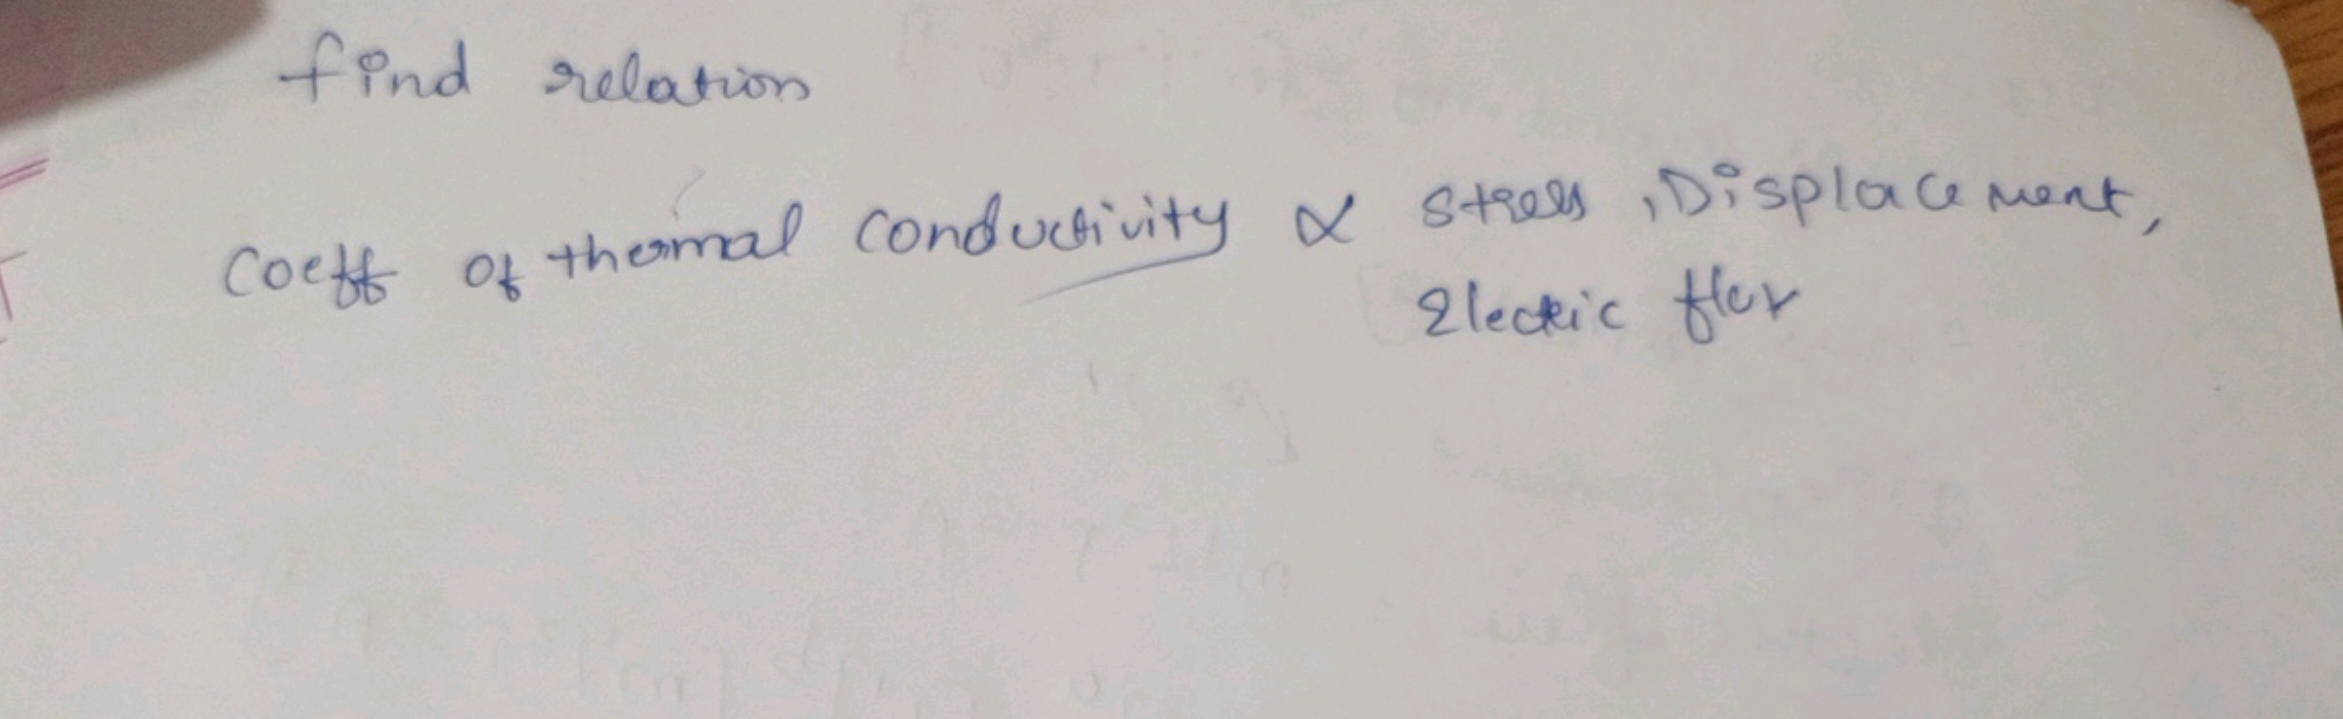 find relation
Coeff of thermal conductivity ∝ stress, Displacement,
Electric flux